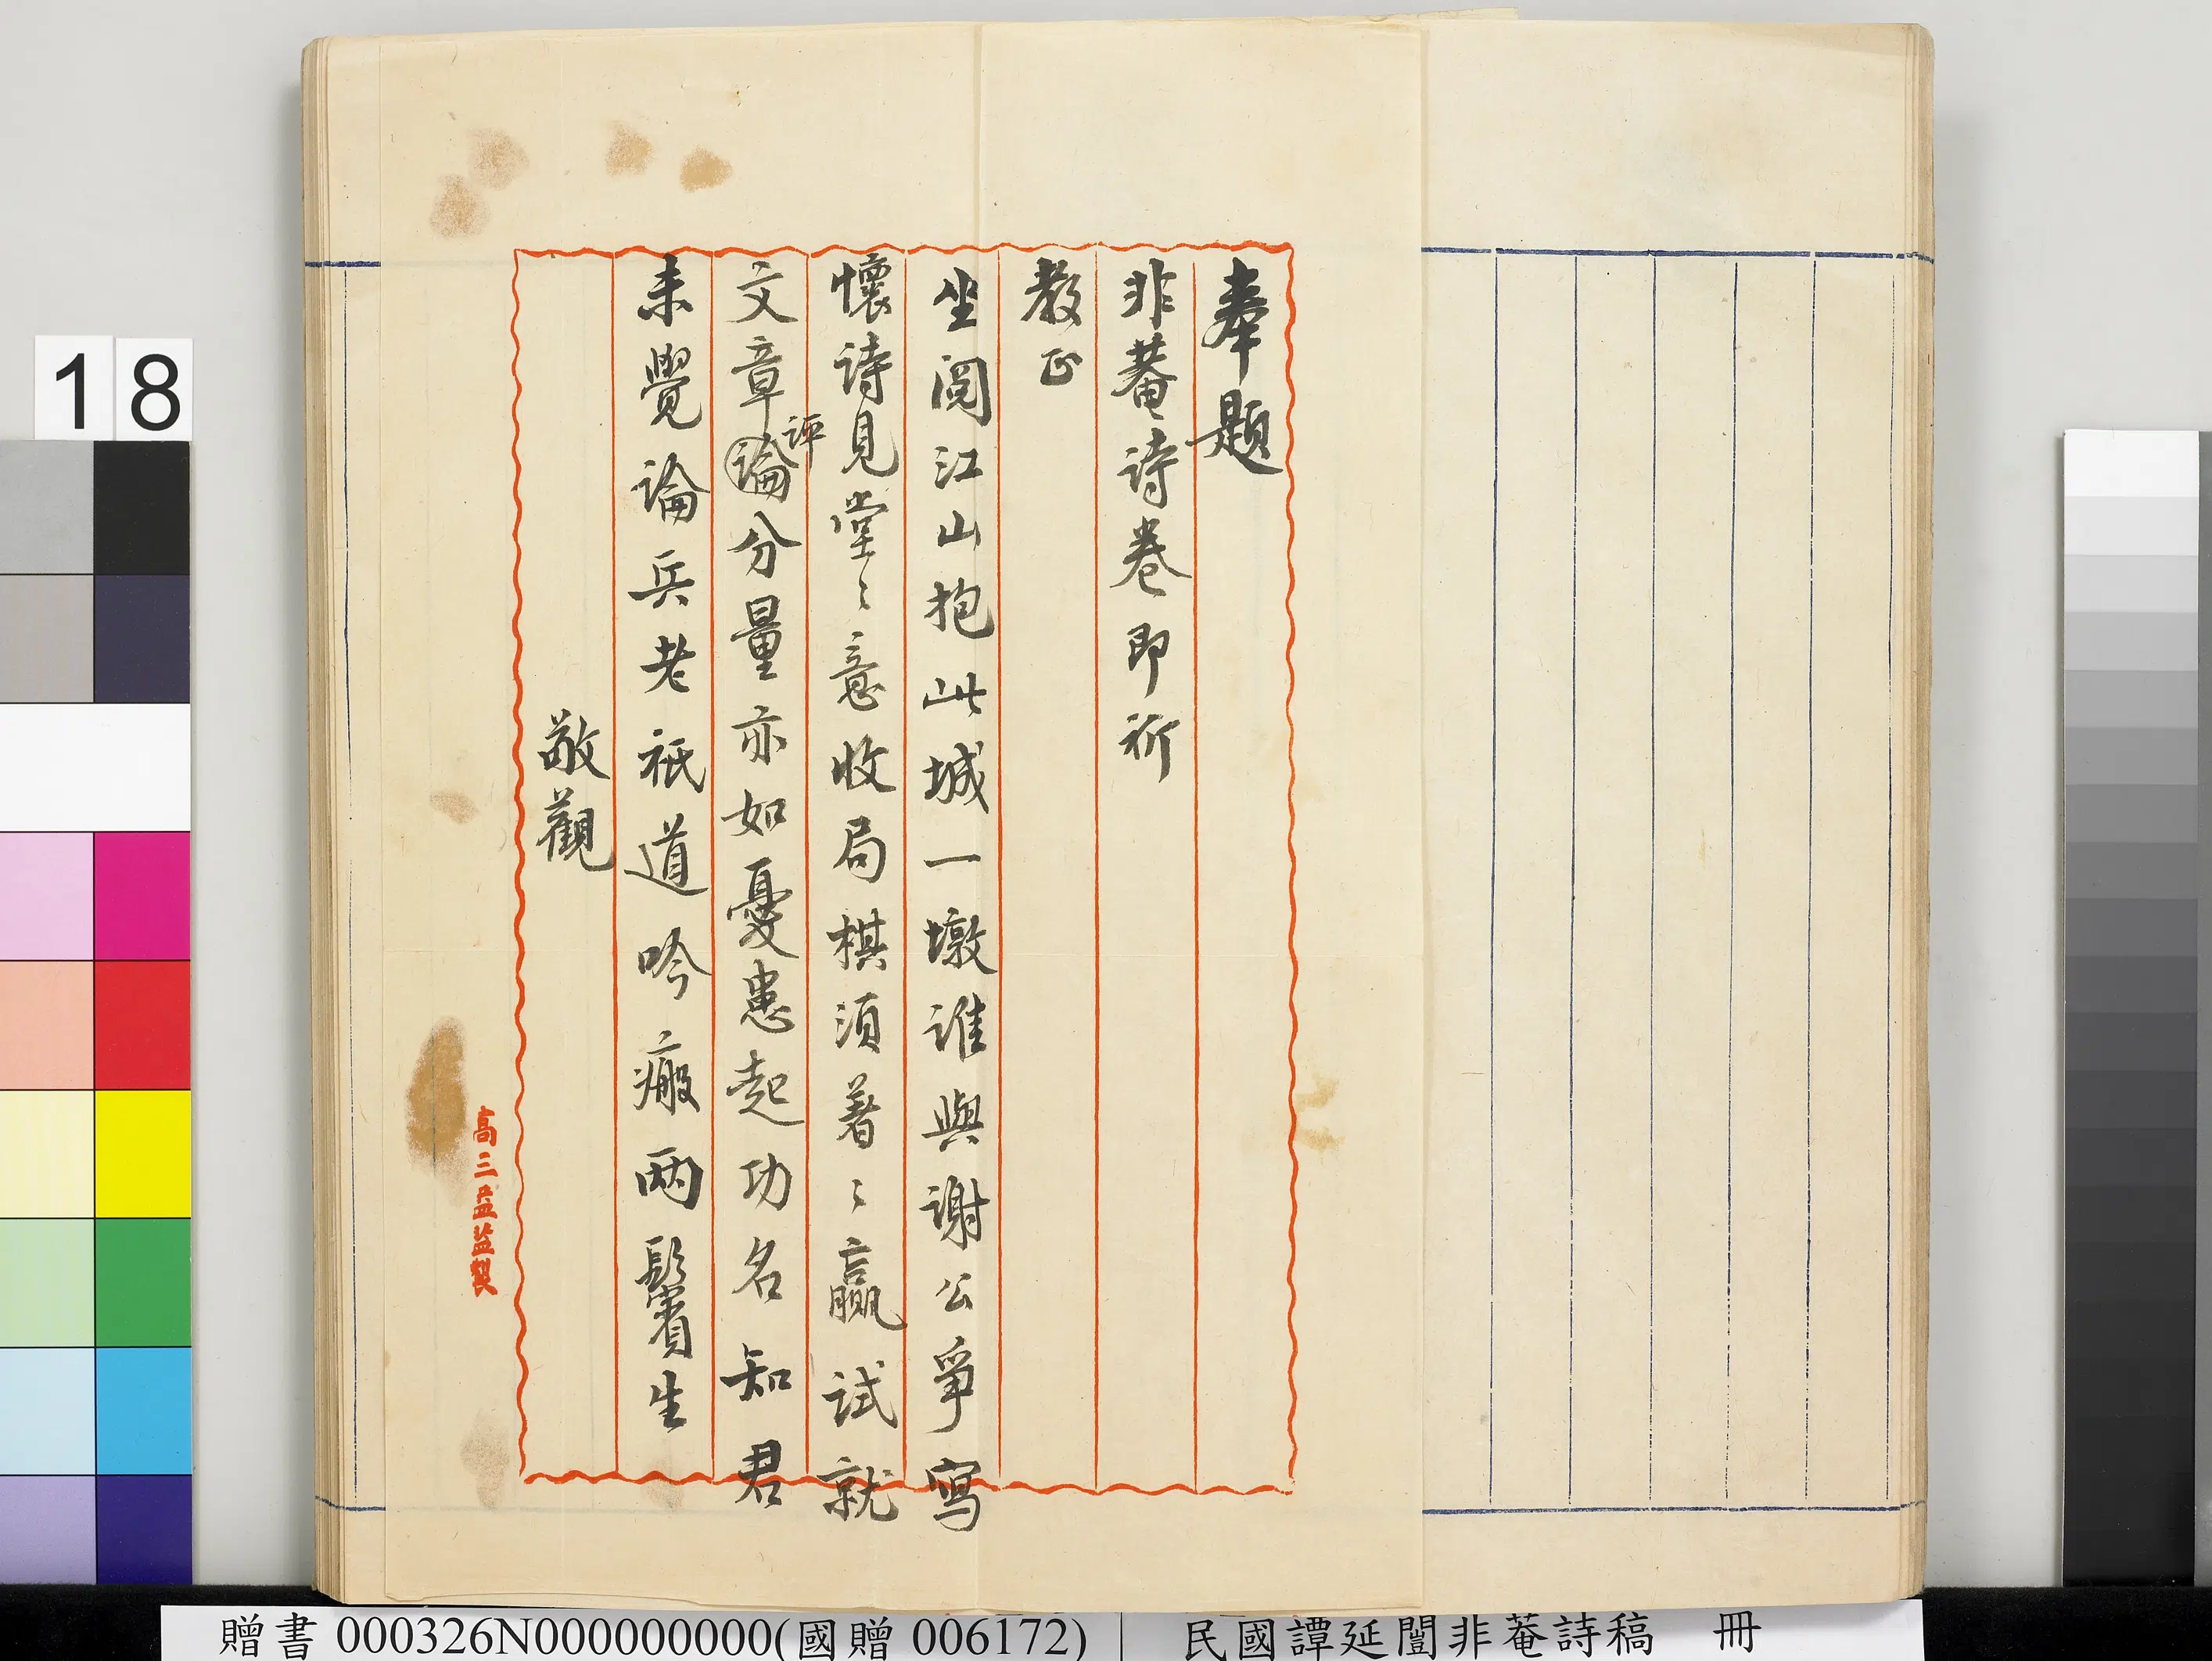 18
奉題
非菴詩卷即祈
教正
坐閱江山抱此城一墩誰與謝公爭寫
懷詩見堂〻意收局棋須著〻贏試就
文章論分量亦如憂患起功名知君
評
未覺論兵老祇道吟瘢兩鬢生
敬觀
高三益監製
贈書 000326N000000000(國贈 006172)
民國譚延闓非菴詩稿 冊